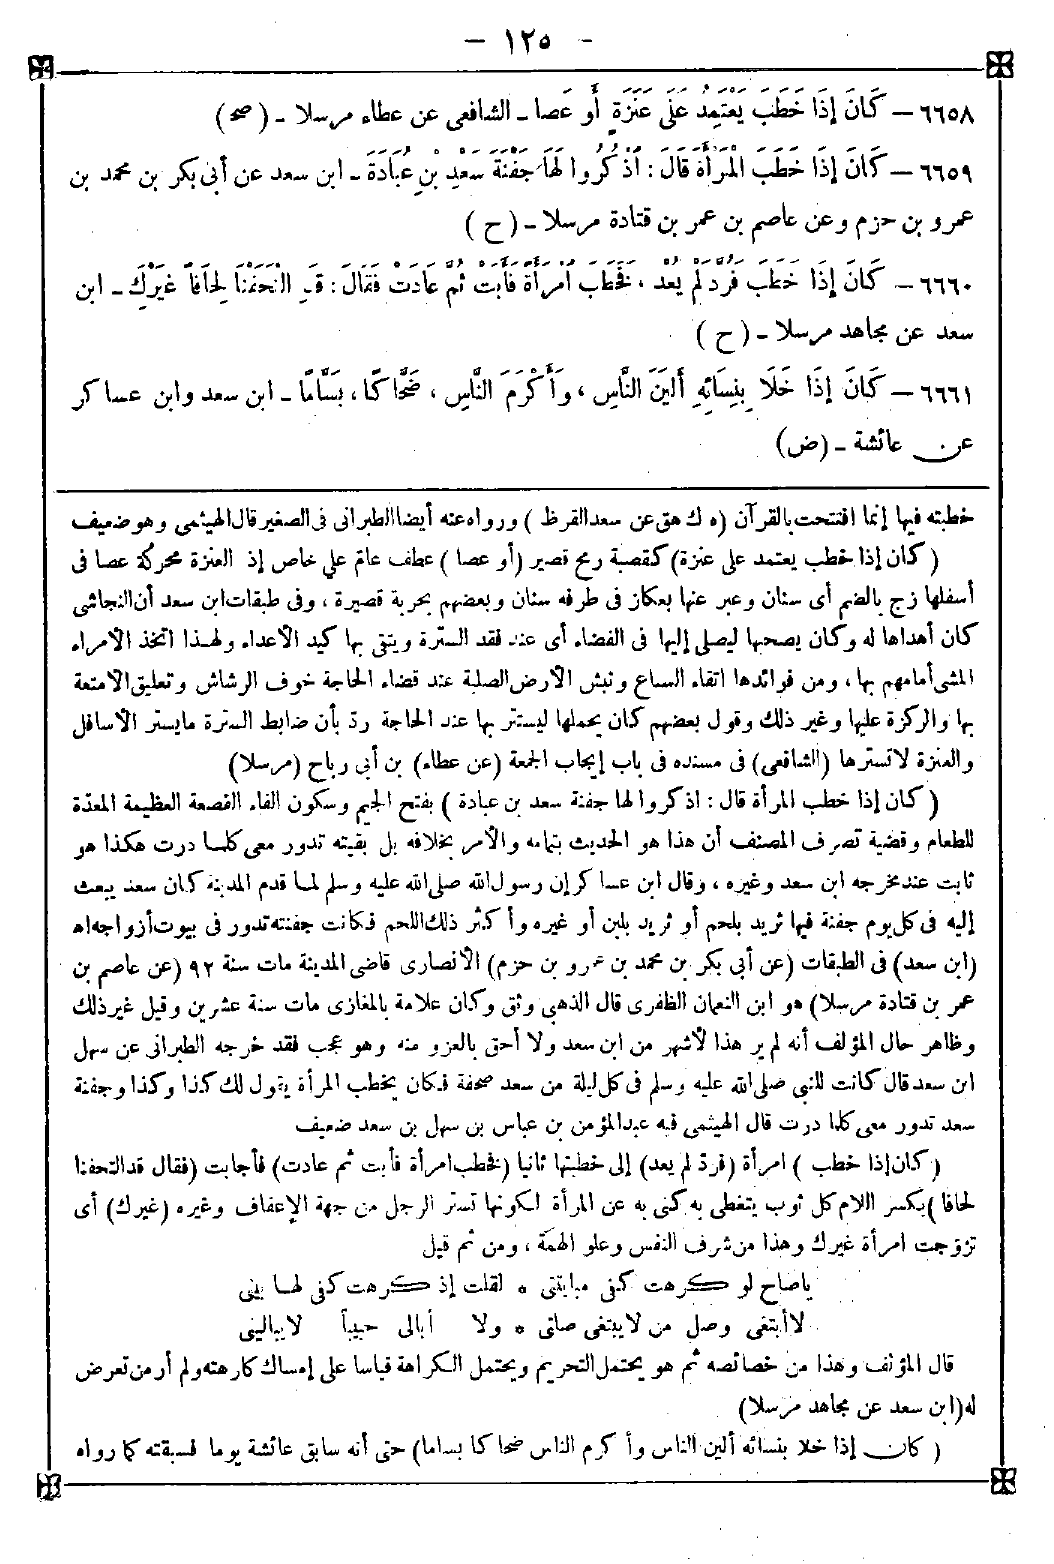 - ١٢٥ -
٦٦٥٨ - كَانَ إِذَا خَطَبَ يَعْتَمِدُ عَلَى عَنَزَةٍ أَو عَصا - الشافعى عن عطاء مرسلا - (صح)
٦٦٥٩ - كَانَ إِذَا خَطَبَ الْمَرْأَةَ قَالَ : اذْكُرُوا لَهَا جَفْنَةَ سَعْدِ بْنِ عُبَادَةَ - ابن سعد عن أبى بكر بن محمد بن
عمرو بن حزم وعن عاصم بن عمر بن قتادة مرسلا - (ح)
٦٦٦٠ - كَانَ إِذَا خَطَبَ فَرُدَّ لَمْ يَعُدْ ، فَخَطَبَ امْرَأَةً فَأَبَتْ ثُمَّ عَادَتْ فَقَالَ : قَدِ الْتَحَفْنَا لِحَافاً غَيْرَكِ - ابن
سعد عن مجاهد مرسلا - (ح)
٦٦٦١ - كَانَ إِذَا خَلَا بِنِسَائِهِ أَلْيَنَ النَّاسِ ، وَأَكْرَمَ النَّاسِ ، ضَحَّاكًا ، بَسَّامًا - ابن سعد وابن عساكر
عن عائشة - (ض)
خطبته فيها إنما افتتحت بالقرآن (ه ك هق عن سعد القرظ) ورواه عنه أيضا الطبرانى فى الصغير قال الهيثمى وهو ضعيف
(كان إذا خطب يعتمد على عنزة) كقصبة رمح قصير (أو عصا) عطف عام على خاص إذ العنزة محركة عصا فى
أسفلها زج بالضم أى سنان وعبر عنها بعكاز فى طرفه سنان وبعضهم بحربة قصيرة ، وفى طبقات ابن سعد أن النجاشى
كان أهداها له وكان يصحبها ليصلى إليها فى الفضاء أى عند فقد السترة ويتقى بها كيد الأعداء ولهذا اتخذ الأمراء
المشى أمامهم بها ، ومن فوائدها اتقاء السباع ونبش الأرض الصلبة عند قضاء الحاجة خوف الرشاش وتعليق الأمتعة
بها والركزة عليها وغير ذلك وقول بعضهم كان يحملها ليستتر بها عند الحاجة ردّ بأن ضابط السترة مايستر الأسافل
والعنزة لاتسترها (الشافعى) فى مسنده فى باب إيجاب الجمعة (عن عطاء) بن أبى رباح (مرسلا)
(كان إذا خطب المرأة قال : اذكروا لها جفنة سعد بن عبادة) بفتح الجيم وسكون الفاء القصعة العظيمة المعدّة
للطعام وقضية تصرف المصنف أن هذا هو الحديث بتمامه والأمر بخلافه بل بقيته تدور معى كلما درت هكذا هو
ثابت عند مخرجه ابن سعد وغيره ، وقال ابن عساكر إن رسول الله صلى الله عليه وسلم لما قدم المدينة كان سعد يبعث
إليه فى كل يوم جفنة فيها ثريد بلحم أو ثريد بلبن أو غيره وأكثر ذلك اللحم فكانت جفنته تدور فى بيوت أزواجه اه
(ابن سعد) فى الطبقات (عن أبى بكر بن محمد بن عمرو بن حزم) الأنصارى قاضى المدينة مات سنة ٩٢ (عن عاصم بن
عمر بن قتادة مرسلا) هو ابن النعمان الظفرى قال الذهبى وثق وكان علامة بالمغازى مات سنة عشرين وقيل غير ذلك
وظاهر حال المؤلف أنه لم ير هذا لأشهر من ابن سعد ولا أحق بالعزو منه وهو عجب فقد خرجه الطبرانى عن سهل
ابن سعد قال كانت للنبى صلى الله عليه وسلم فى كل ليلة من سعد صحفة فكان يخطب المرأة يقول لك كذا وكذا وجفنة
سعد تدور معى كلما درت قال الهيثمى فيه عبد المؤمن بن عباس بن سهل بن سعد ضعيف
(كان إذا خطب) امرأة (فردّ لم يعد) إلى خطبتها ثانيا (فخطب امرأة فأبت ثم عادت) فأجابت (فقال قد التحفنا
لحافا) بكسر اللام كل ثوب يتغطى به كنى به عن المرأة لكونها تستر الرجل من جهة الإعفاف وغيره (غيرك) أى
تزوّجت امرأة غيرك وهذا من شرف النفس وعلو الهمة ، ومن ثم قيل
ياصاح لو كرهت كفى مباينتى ٭ لقلت إذ كرهت كفى لها بينى
لا أبتغى وصل من لايبتغى صلتى ٭ ولا أبالى حبيباً لايبالينى
قال المؤلف وهذا من خصائصه ثم هو يحتمل التحريم ويحتمل الكراهة قياسا على إمساك كارهته ولم أر من تعرض
له (ابن سعد عن مجاهد مرسلا)
(كان إذا خلا بنسائه ألين الناس وأكرم الناس ضحاكا بساما) حتى أنه سابق عائشة يوما فسبقته كما رواه